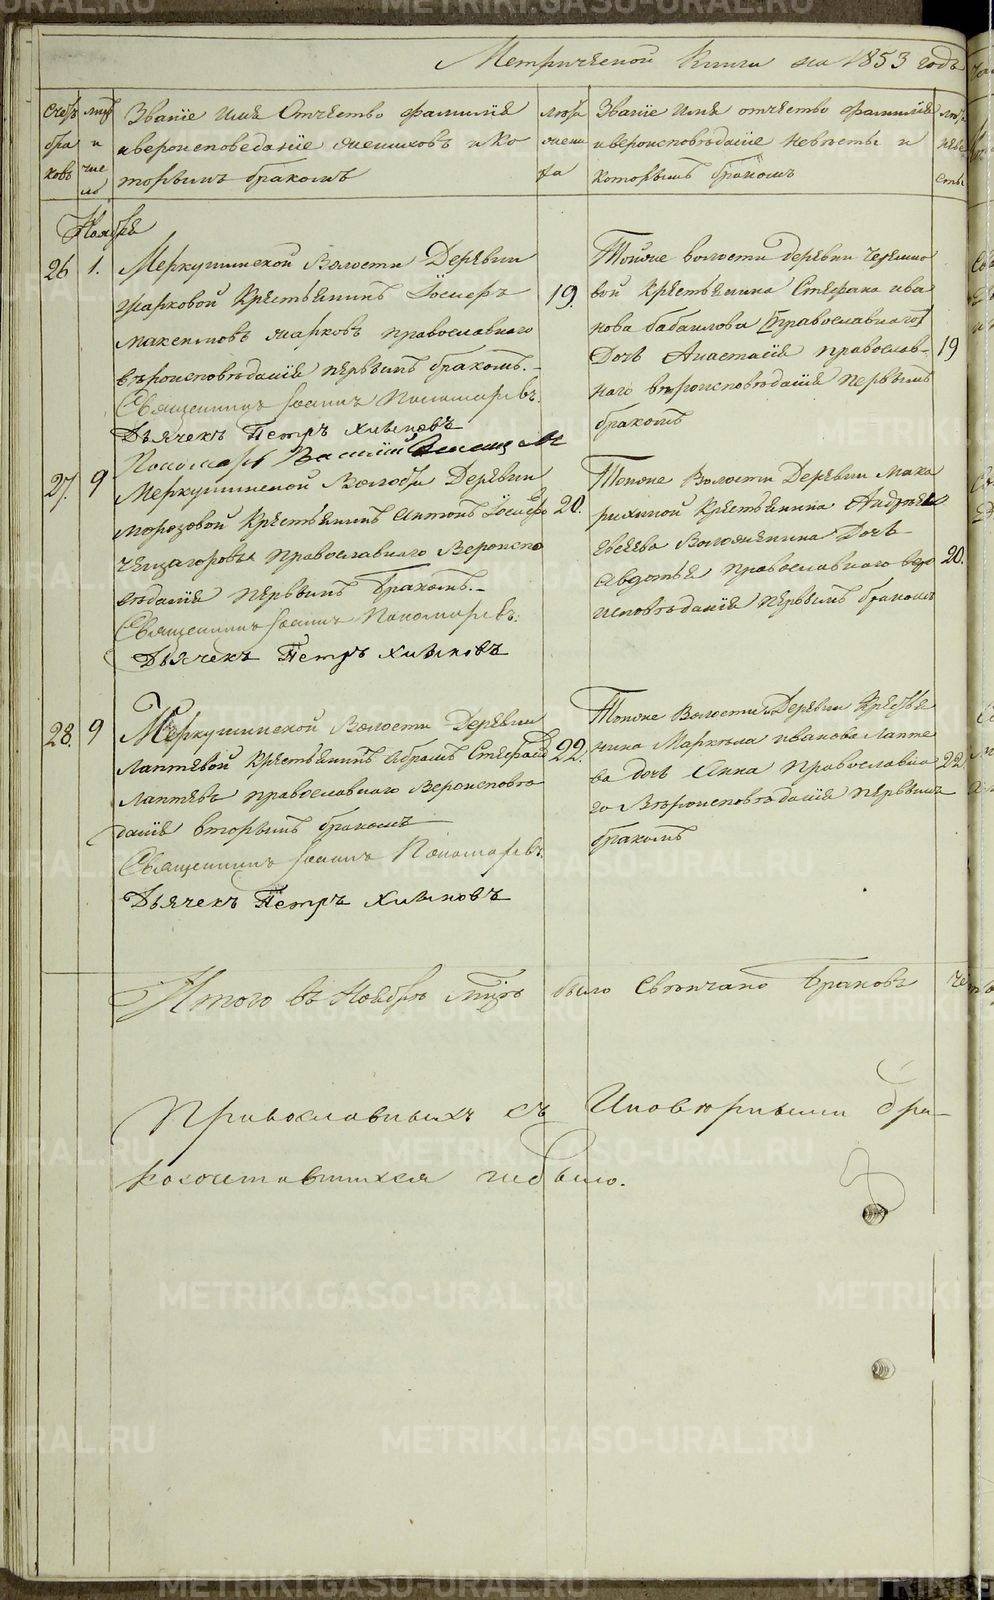 Метрической Книги на 1853 годъ
Счетъ бра ковъ
мцъ и чис ло
Званіе Имя Отчество фамилія
ивероисповеданіе жениховъ и ко
торымъ бракомъ
лѣта жени ха
Званіе Имя отчество фамилія
ивероисповѣданіе невѣсты и
которымъ бракомъ
лѣта невѣ сты
Ноября
26 1. Меркушинской Волости Деревни
Жарковой Крестьянинъ Іосифъ
Максимовъ Жарковъ православнаго
вѣроисповѣданія первымъ бракомъ.
Священникъ Іоаннъ Пономаревъ.
Дьячекъ Петръ Хлыновъ
Пономарь Василій
19.
Тойже волости деревни
вой Крестьянина Стефана ива
нова бабаилова православнаго
Дочь Анастасія православ-
наго вѣроисповѣданія первымъ
бракомъ
19
27. 9 Меркушинской Волости Деревни
Морозовой Крестьянинъ Антонъ Іосифо
православнаго Вероиспо
вѣданія первымъ бракомъ.
Священникъ Іоаннъ Пономаревъ.
Дьячекъ Петръ Хлыновъ
20.
Тойже Волости Деревни Мака
рихиной Крестьянина Андрея
Евсеева Дочь
Авдотья православнаго веро
исповѣданія первымъ бракомъ
20.
28. 9 Меркушинской Волости Деревни
Лаптевой Крестьянинъ Абрамъ Стефанов
Лаптевъ православнаго Вероисповѣ
данія вторымъ бракомъ
Священникъ Іоаннъ Пономаревъ.
Дьячекъ Петръ Хлыновъ
22.
Тойже Волости и Деревни Крестья
нина Маркела иванова Лапте
ва дочь Анна православна
го Вѣроисповѣданія первымъ
бракомъ
22.
Итого въ Ноябрѣ мцѣ было Свенчано Браковъ
Православныхъ съ Иновѣрными бра-
косочетавшихся небыло.
METRIKI.GASO-URAL.RU